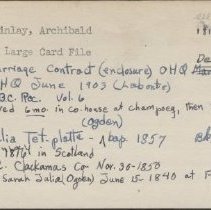 inlay, Archibald
Large Card File
rriage Contract (enclosure) OHQ
HQ June 1903 (Labonte)
B.C. Pac. Vol. 6
ved 6 mo. in Co. house at Champoeg, then
(Ogden)
lia Tet-platte - bap. 1857
in Scotland
Clackamas Co Nov. 30-1850
Sarah Julia (Ogden) June 15-1840 at F